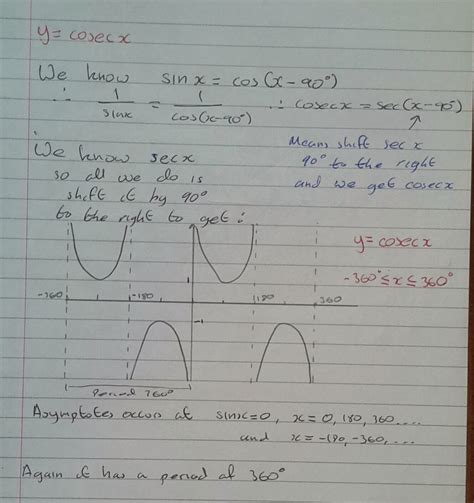 y = cosec x
We know sin x = cos(x-90°)
∴ 1/sinx = 1/cos(x-90°) ∴ cosec x = sec(x-90°)
We know sec x
so all we do is
shift it by 90°
to the right to get :
Means shift sec x
90° to the right
and we get cosec x
y = cosec x
-360° ≤ x ≤ 360°
1
-360 -180 180 360
-1
Period 360°
Asymptotes occurs at sinx=0, x = 0, 180, 360....
and x = -180, -360, ...
Again it has a period of 360°